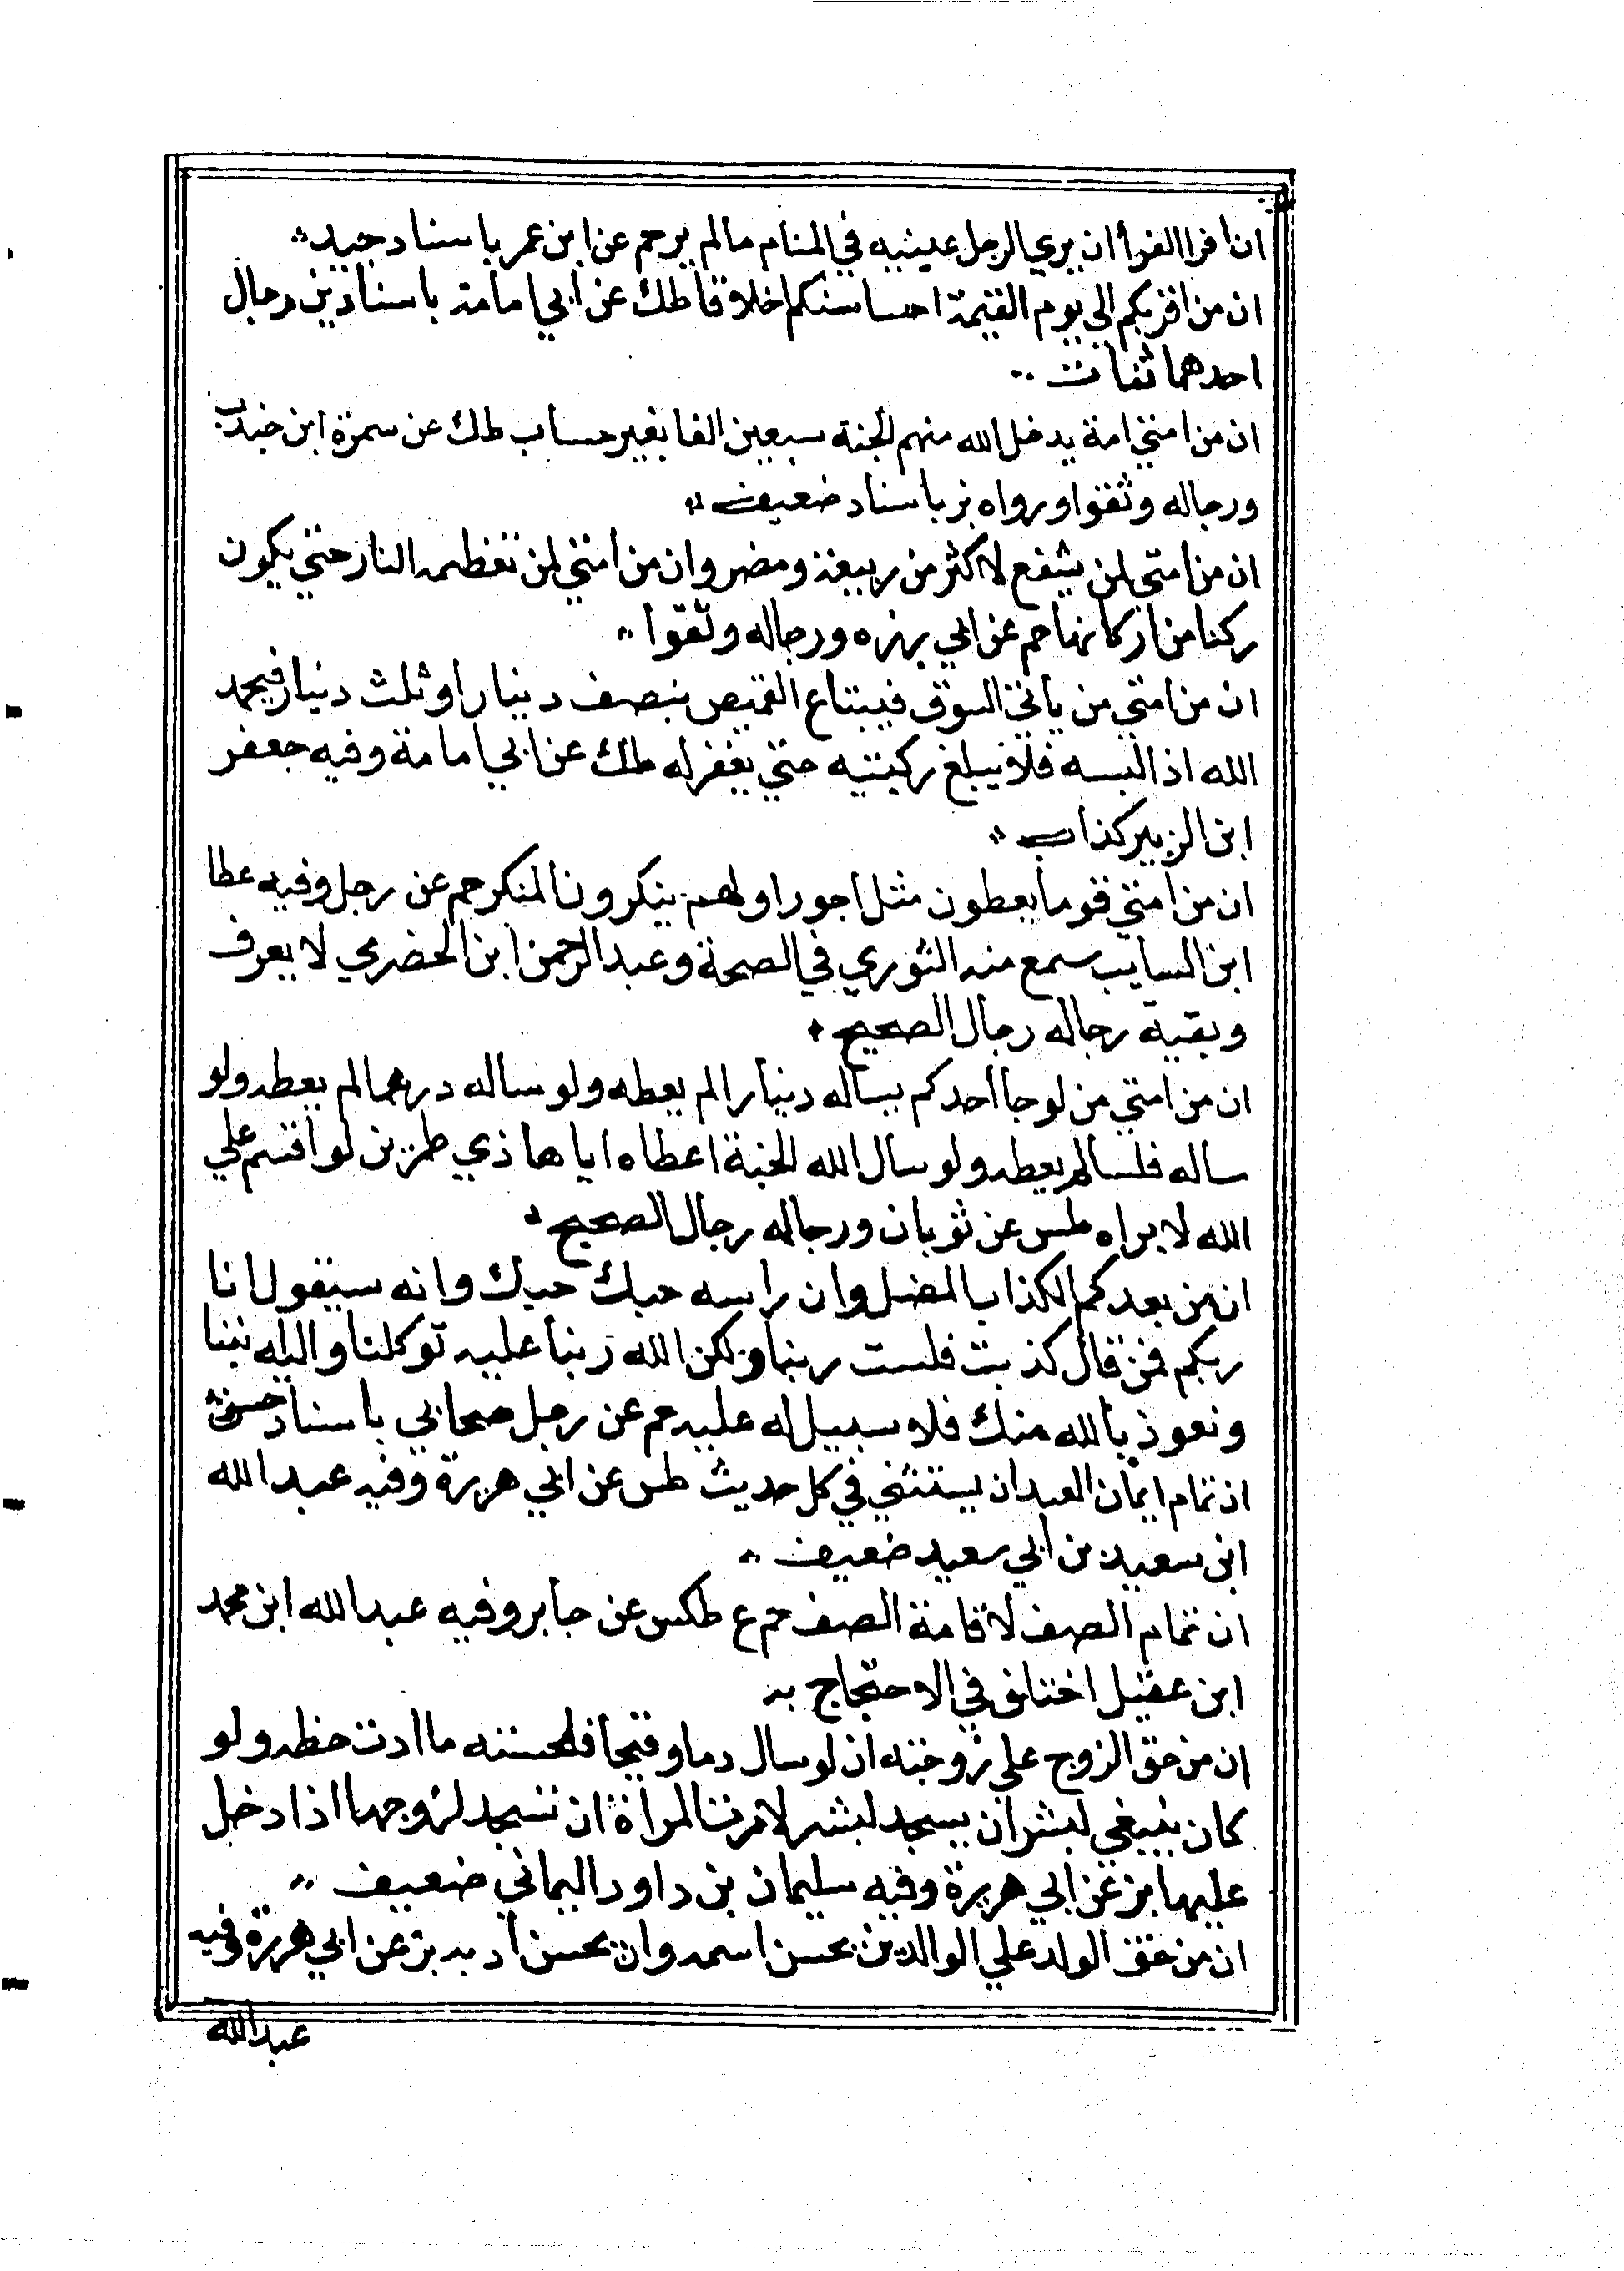 ان افرا الفرا أن يري الرجل عينيه في المنام مالم ير حم عن ابن عمر باسناد جيد
ان من اقربكم الي يوم القيمة احاسنكم اخلاقا طك عن ابي امامة باسنادين رجال
احدهما ثقات
ان من امتي امة يدخل الله منهم الجنة سبعين الفا بغير حساب طك عن سمرة ابن جندب
ورجاله وثقوا ورواه بز باسناد ضعيف
ان من امتي لمن يشفع لاكثر من ربيعة ومضر وان من امتي لمن تعظمه النار حتي يكون
ركنا من اركانها حم عن ابي برزه ورجاله وثقوا
ان من امتي من ياتي السوق فيبتاع القميص بنصف دينار او ثلث دينار فيحمد
الله اذا لبسه فلا يبلغ ركبتيه حتي يغفر له طك عن ابي امامة وفيه جعفر
ابن الزبير كذاب
ان من امتي قوما يعطون مثل اجور اولهم ينكرون المنكر حم عن رجل وفيه عطا
ابن السايب سمع منه الثوري في الصحة وعبد الرحمن ابن الحضرمي لا يعرف
وبقية رجاله رجال الصحيح
ان من امتي من لو جا أحدكم يساله دينارا لم يعطه ولو ساله درهما لم يعطه ولو
ساله فلسا لم يعطه ولو سال الله الجنة اعطاه اياها ذي طمرين لو اقسم علي
الله لابراه طس عن ثوبان ورجاله رجال الصحيح
ان من بعدكم الكذاب المضل وان راسه حبك حبك وانه سيقول انا
ربكم فمن قال كذبت فلست ربنا ولكن الله ربنا عليه توكلنا واليه نبنا
ونعوذ بالله منك فلا سبيل له عليه حم عن رجل صحابي باسناد حسن
ان تمام ايمان العبد ان يستثني في كل حديث طس عن ابي هريرة وفيه عبد الله
ابن سعيد بن ابي سعيد ضعيف
ان تمام الصف لاقامة الصف حم ع طكس عن جابر وفيه عبد الله ابن محمد
ابن عقيل اختلف في الاحتجاج به
إن من حق الزوج علي زوجته ان لو سال دما وقيحا فلحسته ما ادت حظه ولو
كان ينبغي لبشر ان يسجد لبشر لامرت المراة ان تسجد لزوجها اذا دخل
عليها بز عن ابي هريرة وفيه سليمان بن داود اليماني ضعيف
ان من حق الولد علي الوالد ين يحسن اسمه وان يحسن أدبه بز عن ابي هريرة وفيه
عبد الله